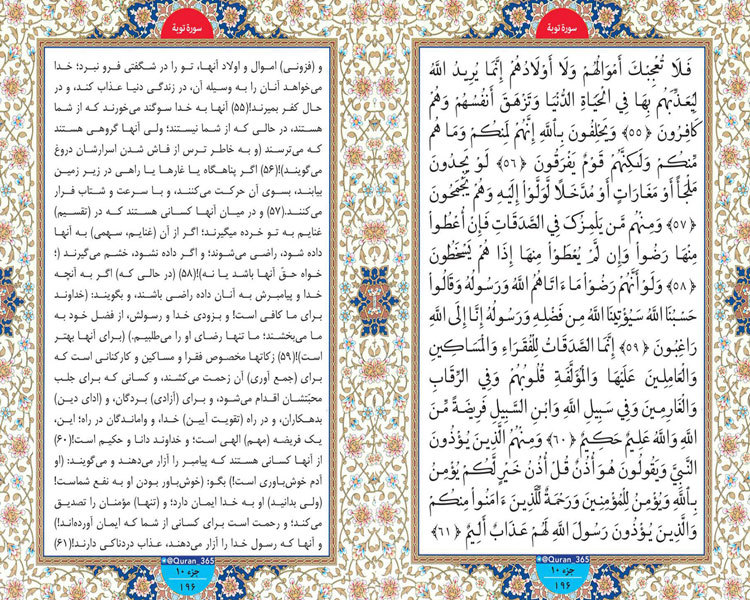 سورة توبة
فَلَا تُعْجِبْكَ أَمْوَالُهُمْ وَلَا أَوْلَادُهُمْ إِنَّمَا يُرِيدُ اللَّهُ
لِيُعَذِّبَهُم بِهَا فِي الْحَيَاةِ الدُّنْيَا وَتَزْهَقَ أَنفُسُهُمْ وَهُمْ
كَافِرُونَ ﴿٥٥﴾ وَيَحْلِفُونَ بِاللَّهِ إِنَّهُمْ لَمِنكُمْ وَمَا هُم
مِّنكُمْ وَلَكِنَّهُمْ قَوْمٌ يَفْرَقُونَ ﴿٥٦﴾ لَوْ يَجِدُونَ
مَلْجَأً أَوْ مَغَارَاتٍ أَوْ مُدَّخَلًا لَّوَلَّوْا إِلَيْهِ وَهُمْ يَجْمَحُونَ
﴿٥٧﴾ وَمِنْهُم مَّن يَلْمِزُكَ فِي الصَّدَقَاتِ فَإِنْ أُعْطُوا
مِنْهَا رَضُوا وَإِن لَّمْ يُعْطَوْا مِنْهَا إِذَا هُمْ يَسْخَطُونَ
﴿٥٨﴾ وَلَوْ أَنَّهُمْ رَضُوْا مَا ءَاتَاهُمُ اللَّهُ وَرَسُولُهُ وَقَالُوا
حَسْبُنَا اللَّهُ سَيُؤْتِينَا اللَّهُ مِن فَضْلِهِ وَرَسُولُهُ إِنَّا إِلَى اللَّهِ
رَاغِبُونَ ﴿٥٩﴾ إِنَّمَا الصَّدَقَاتُ لِلْفُقَرَاءِ وَالْمَسَاكِينِ
وَالْعَامِلِينَ عَلَيْهَا وَالْمُؤَلَّفَةِ قُلُوبُهُمْ وَفِي الرِّقَابِ
وَالْغَارِمِينَ وَفِي سَبِيلِ اللَّهِ وَابْنِ السَّبِيلِ فَرِيضَةً مِّنَ
اللَّهِ وَاللَّهُ عَلِيمٌ حَكِيمٌ ﴿٦٠﴾ وَمِنْهُمُ الَّذِينَ يُؤْذُونَ
النَّبِيَّ وَيَقُولُونَ هُوَ أُذُنٌ قُلْ أُذُنُ خَيْرٍ لَّكُمْ يُؤْمِنُ
بِاللَّهِ وَيُؤْمِنُ لِلْمُؤْمِنِينَ وَرَحْمَةٌ لِّلَّذِينَ ءَامَنُوا مِنكُمْ
وَالَّذِينَ يُؤْذُونَ رَسُولَ اللَّهِ لَهُمْ عَذَابٌ أَلِيمٌ ﴿٦١﴾
@Quran_365
جزء ۱۰
۱۹۶
سورة توبة
و (فزونی) اموال و اولاد آنها، تو را در شگفتی فرو نبرد؛ خدا
می‌خواهد آنان را به وسیله آن، در زندگی دنیا عذاب کند، و در
حال کفر بمیرند!(۵۵) آنها به خدا سوگند می‌خورند که از شما
هستند، در حالی که از شما نیستند؛ ولی آنها گروهی هستند
که می‌ترسند (و به خاطر ترس از فاش شدن اسرارشان دروغ
می‌گویند)!(۵۶) اگر پناهگاه یا غارها یا راهی در زیر زمین
بیابند، بسوی آن حرکت می‌کنند، و با سرعت و شتاب فرار
می‌کنند.(۵۷) و در میان آنها کسانی هستند که در (تقسیم)
غنایم به تو خرده میگیرند؛ اگر از آن (غنایم، سهمی) به آنها
داده شود، راضی می‌شوند؛ و اگر داده نشود، خشم می‌گیرند (؛
خواه حقّ آنها باشد یا نه)!(۵۸) (در حالی که) اگر به آنچه
خدا و پیامبرش به آنان داده راضی باشند، و بگویند: (خداوند
برای ما کافی است! و بزودی خدا و رسولش، از فضل خود به
ما می‌بخشند؛ ما تنها رضای او را می‌طلبیم.) (برای آنها بهتر
است)!(۵۹) زکاتها مخصوص فقرا و مساکین و کارکنانی است که
برای (جمع آوری) آن زحمت می‌کشند، و کسانی که برای جلب
محبّتشان اقدام می‌شود، و برای (آزادی) بردگان، و (ادای دین)
بدهکاران، و در راه (تقویت آیین) خدا، و واماندگان در راه؛ این،
یک فریضه (مهم) الهی است؛ و خداوند دانا و حکیم است!(۶۰)
از آنها کسانی هستند که پیامبر را آزار می‌دهند و می‌گویند: (او
آدم خوش‌باوری است!) بگو: (خوش‌باور بودن او به نفع شماست!
(ولی بدانید) او به خدا ایمان دارد؛ و (تنها) مؤمنان را تصدیق
می‌کند؛ و رحمت است برای کسانی از شما که ایمان آورده‌اند!)
و آنها که رسول خدا را آزار می‌دهند، عذاب دردناکی دارند!(۶۱)
@Quran_365
جزء ۱۰
۱۹۶